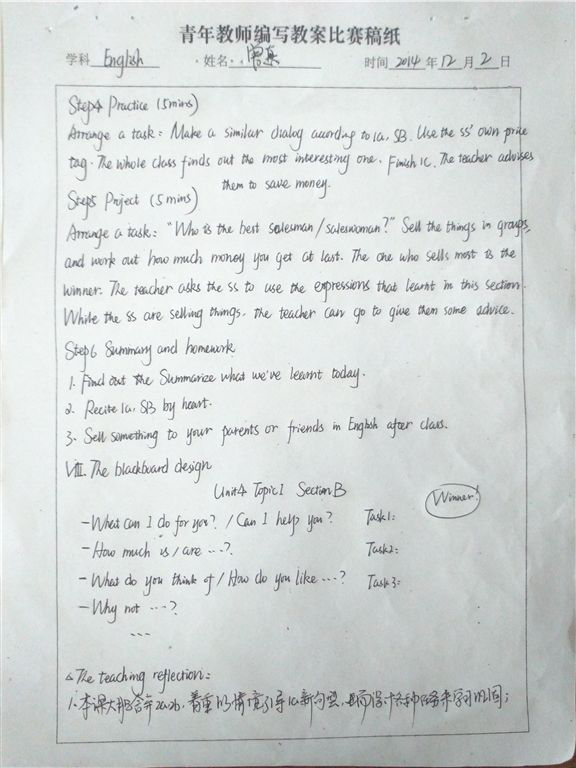 青年教师编写教案比赛稿纸
学科 English 姓名: 时间 2014 年 12 月 2 日
Step4 Practice (5mins)
Arrange a task: Make a similar dialog according to 1a, SB. Use the ss' own price
tag. The whole class finds out the most interesting one. Finish 1C. The teacher advises
them to save money.
Step5 Project (5 mins)
Arrange a task: "Who is the best salesman/saleswoman?" Sell the things in groups,
and work out how much money you get at last. The one who sells most is the
winner. The teacher asks the ss to use the expressions that learnt in this section.
While the ss are selling things, the teacher can go to give them some advice.
Step6 Summary and homework
1. Find out the Summarize what we've learnt today.
2. Recite 1a, SB by heart.
3. Sell something to your parents or friends in English after class.
VIII. The blackboard design
Unit4 Topic1 SectionB
Winner!
-What can I do for you? / Can I help you? Task1:
-How much is / are ...? Task2:
-What do you think of / How do you like ...? Task3:
-Why not ...?
...
△The teaching reflection:
1. 本课大胆合并2a2b, 着重以情境引导1a新句型,